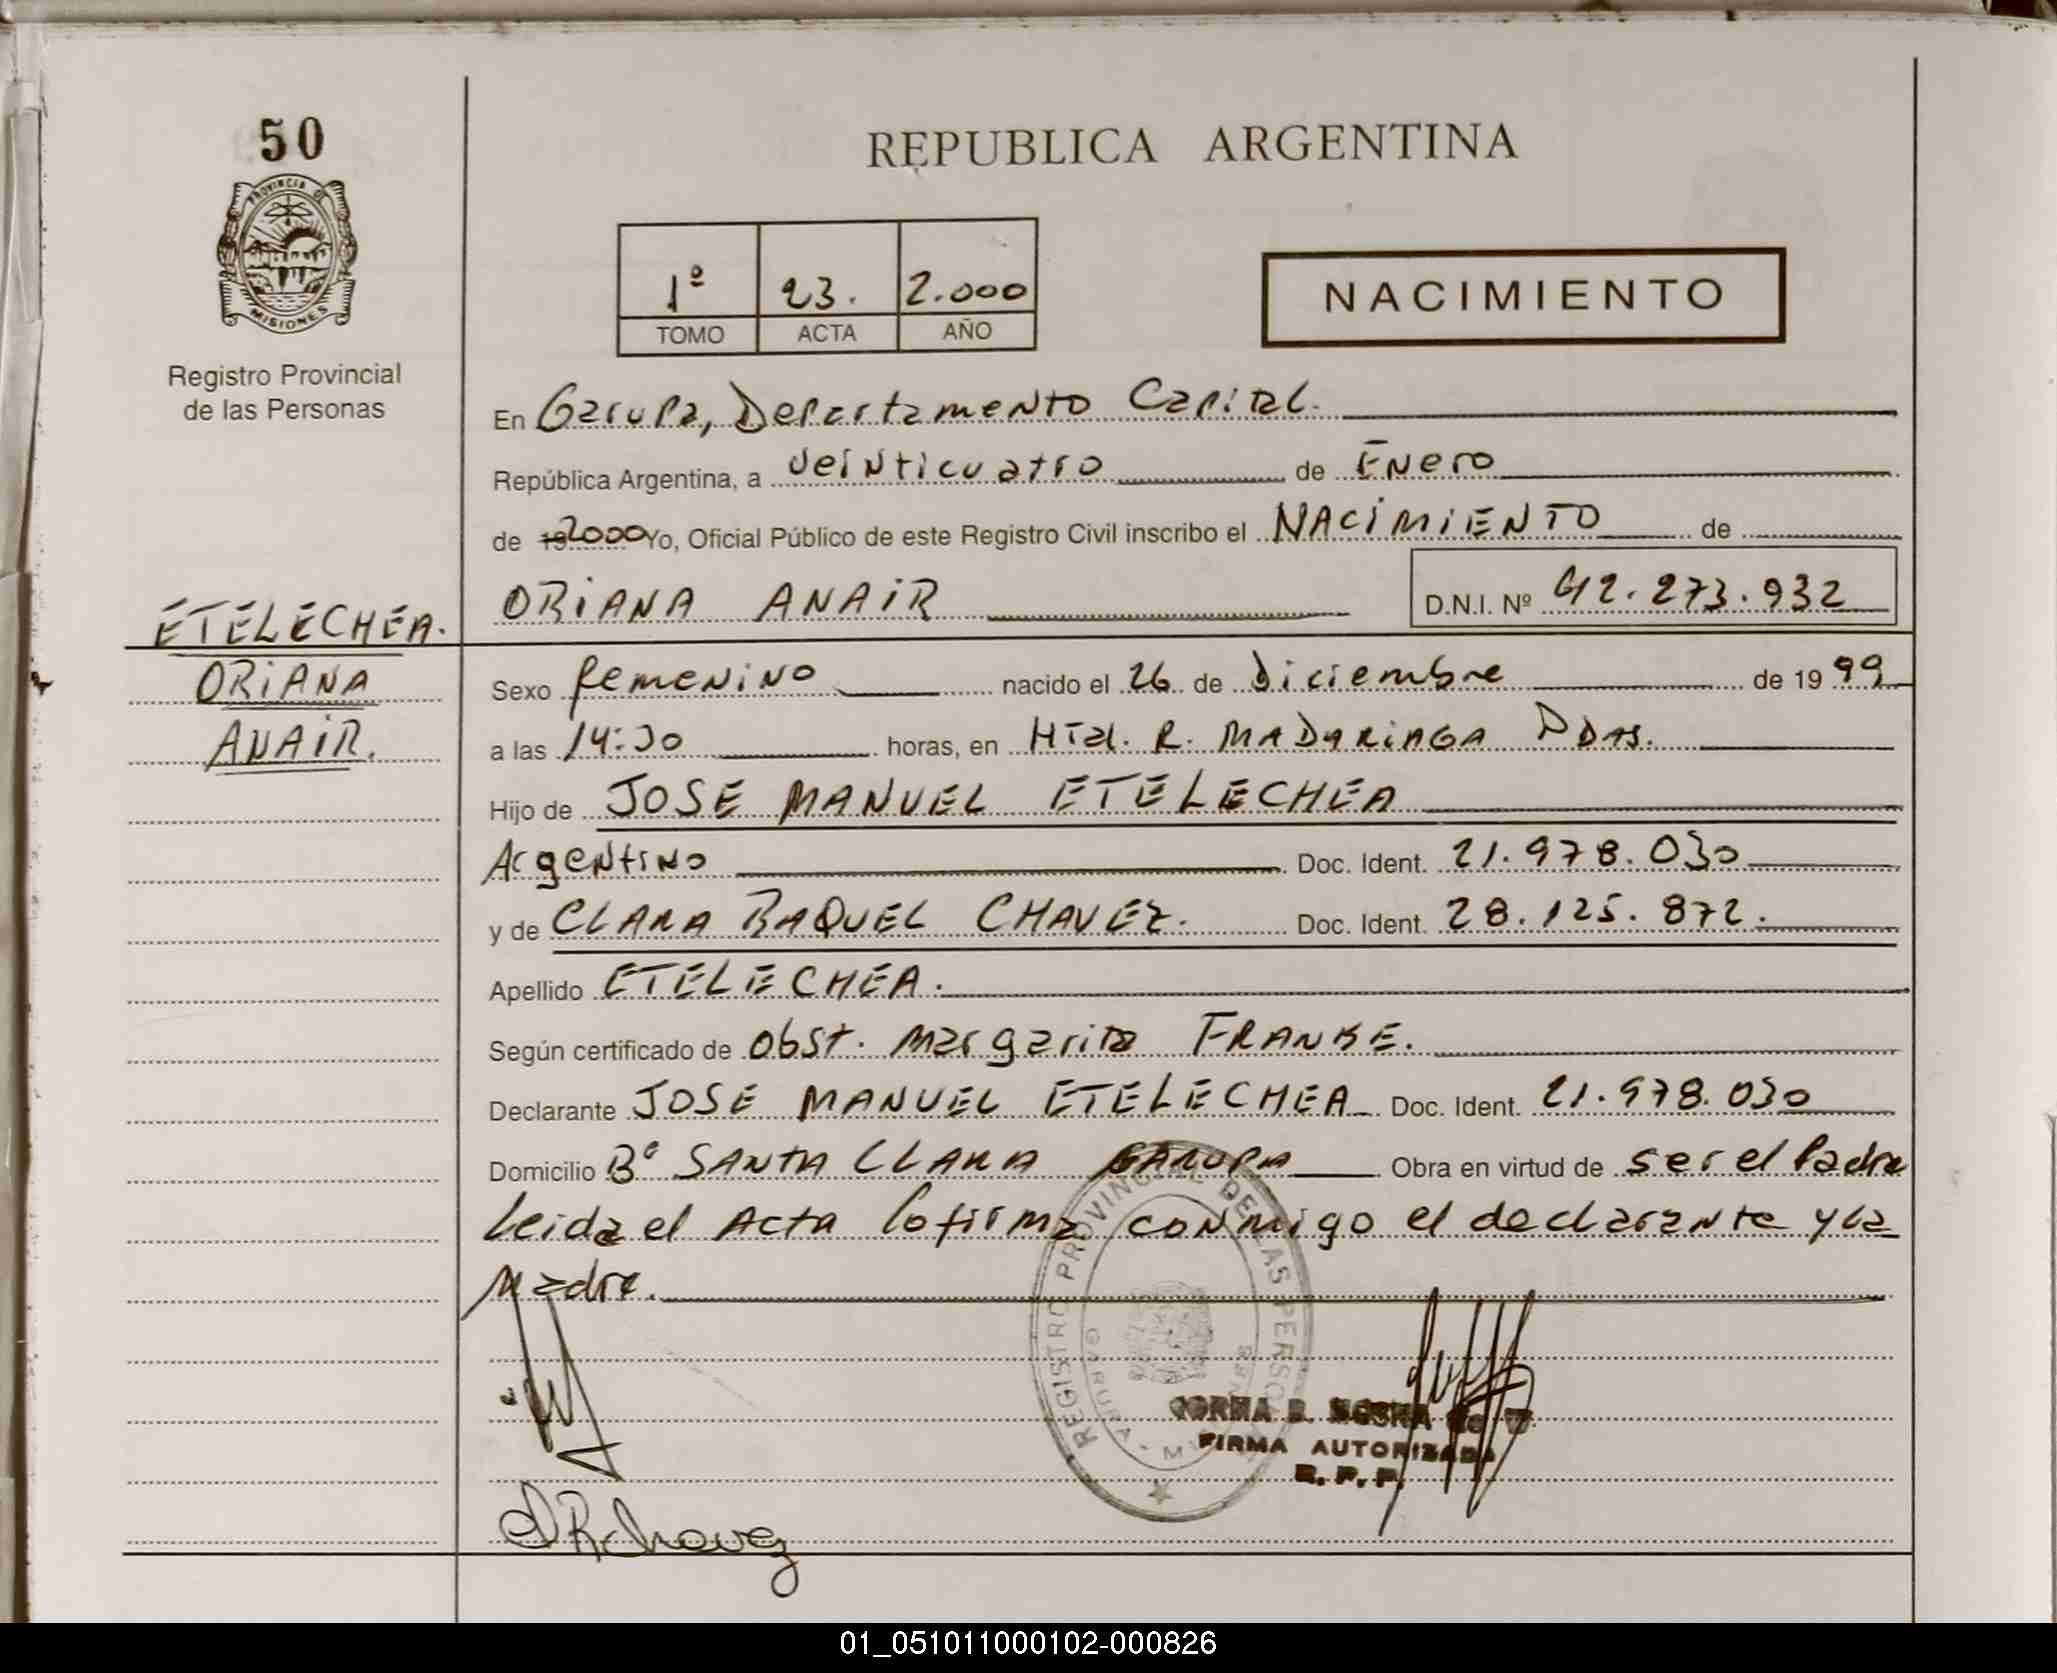 50
PROVINCIA DE
MISIONES
Registro Provincial
de las Personas
REPUBLICA ARGENTINA
1º 23. 2.000
TOMO ACTA AÑO
NACIMIENTO
En Garupa, Departamento Capital.
República Argentina, a veinticuatro de Enero
de 19 2000 Yo, Oficial Público de este Registro Civil inscribo el NACIMIENTO de
ORIANA ANAIR D.N.I. Nº 42.273.932
ETELECHEA.
ORIANA
ANAIR.
Sexo femenino nacido el 26 de Diciembre de 1999
a las 14:30 horas, en Htal. R. MADARIAGA PDAS.
Hijo de JOSE MANUEL ETELECHEA
Argentino Doc. Ident. 21.978.030
y de CLARA RAQUEL CHAVEZ. Doc. Ident. 28.125.872.
Apellido ETELECHEA.
Según certificado de obst. Margarita FRANKE.
Declarante JOSE MANUEL ETELECHEA Doc. Ident. 21.978.030
Domicilio Bº SANTA CLARA GARUPA Obra en virtud de ser el Padre
Leida el Acta la firma conmigo el declarante y la
Madre.
REGISTRO PROVINCIAL DE LAS PERSONAS
GARUPA - MISIONES
FIRMA AUTORIZADA
R. P. P.
CRChavez
01_051011000102-000826